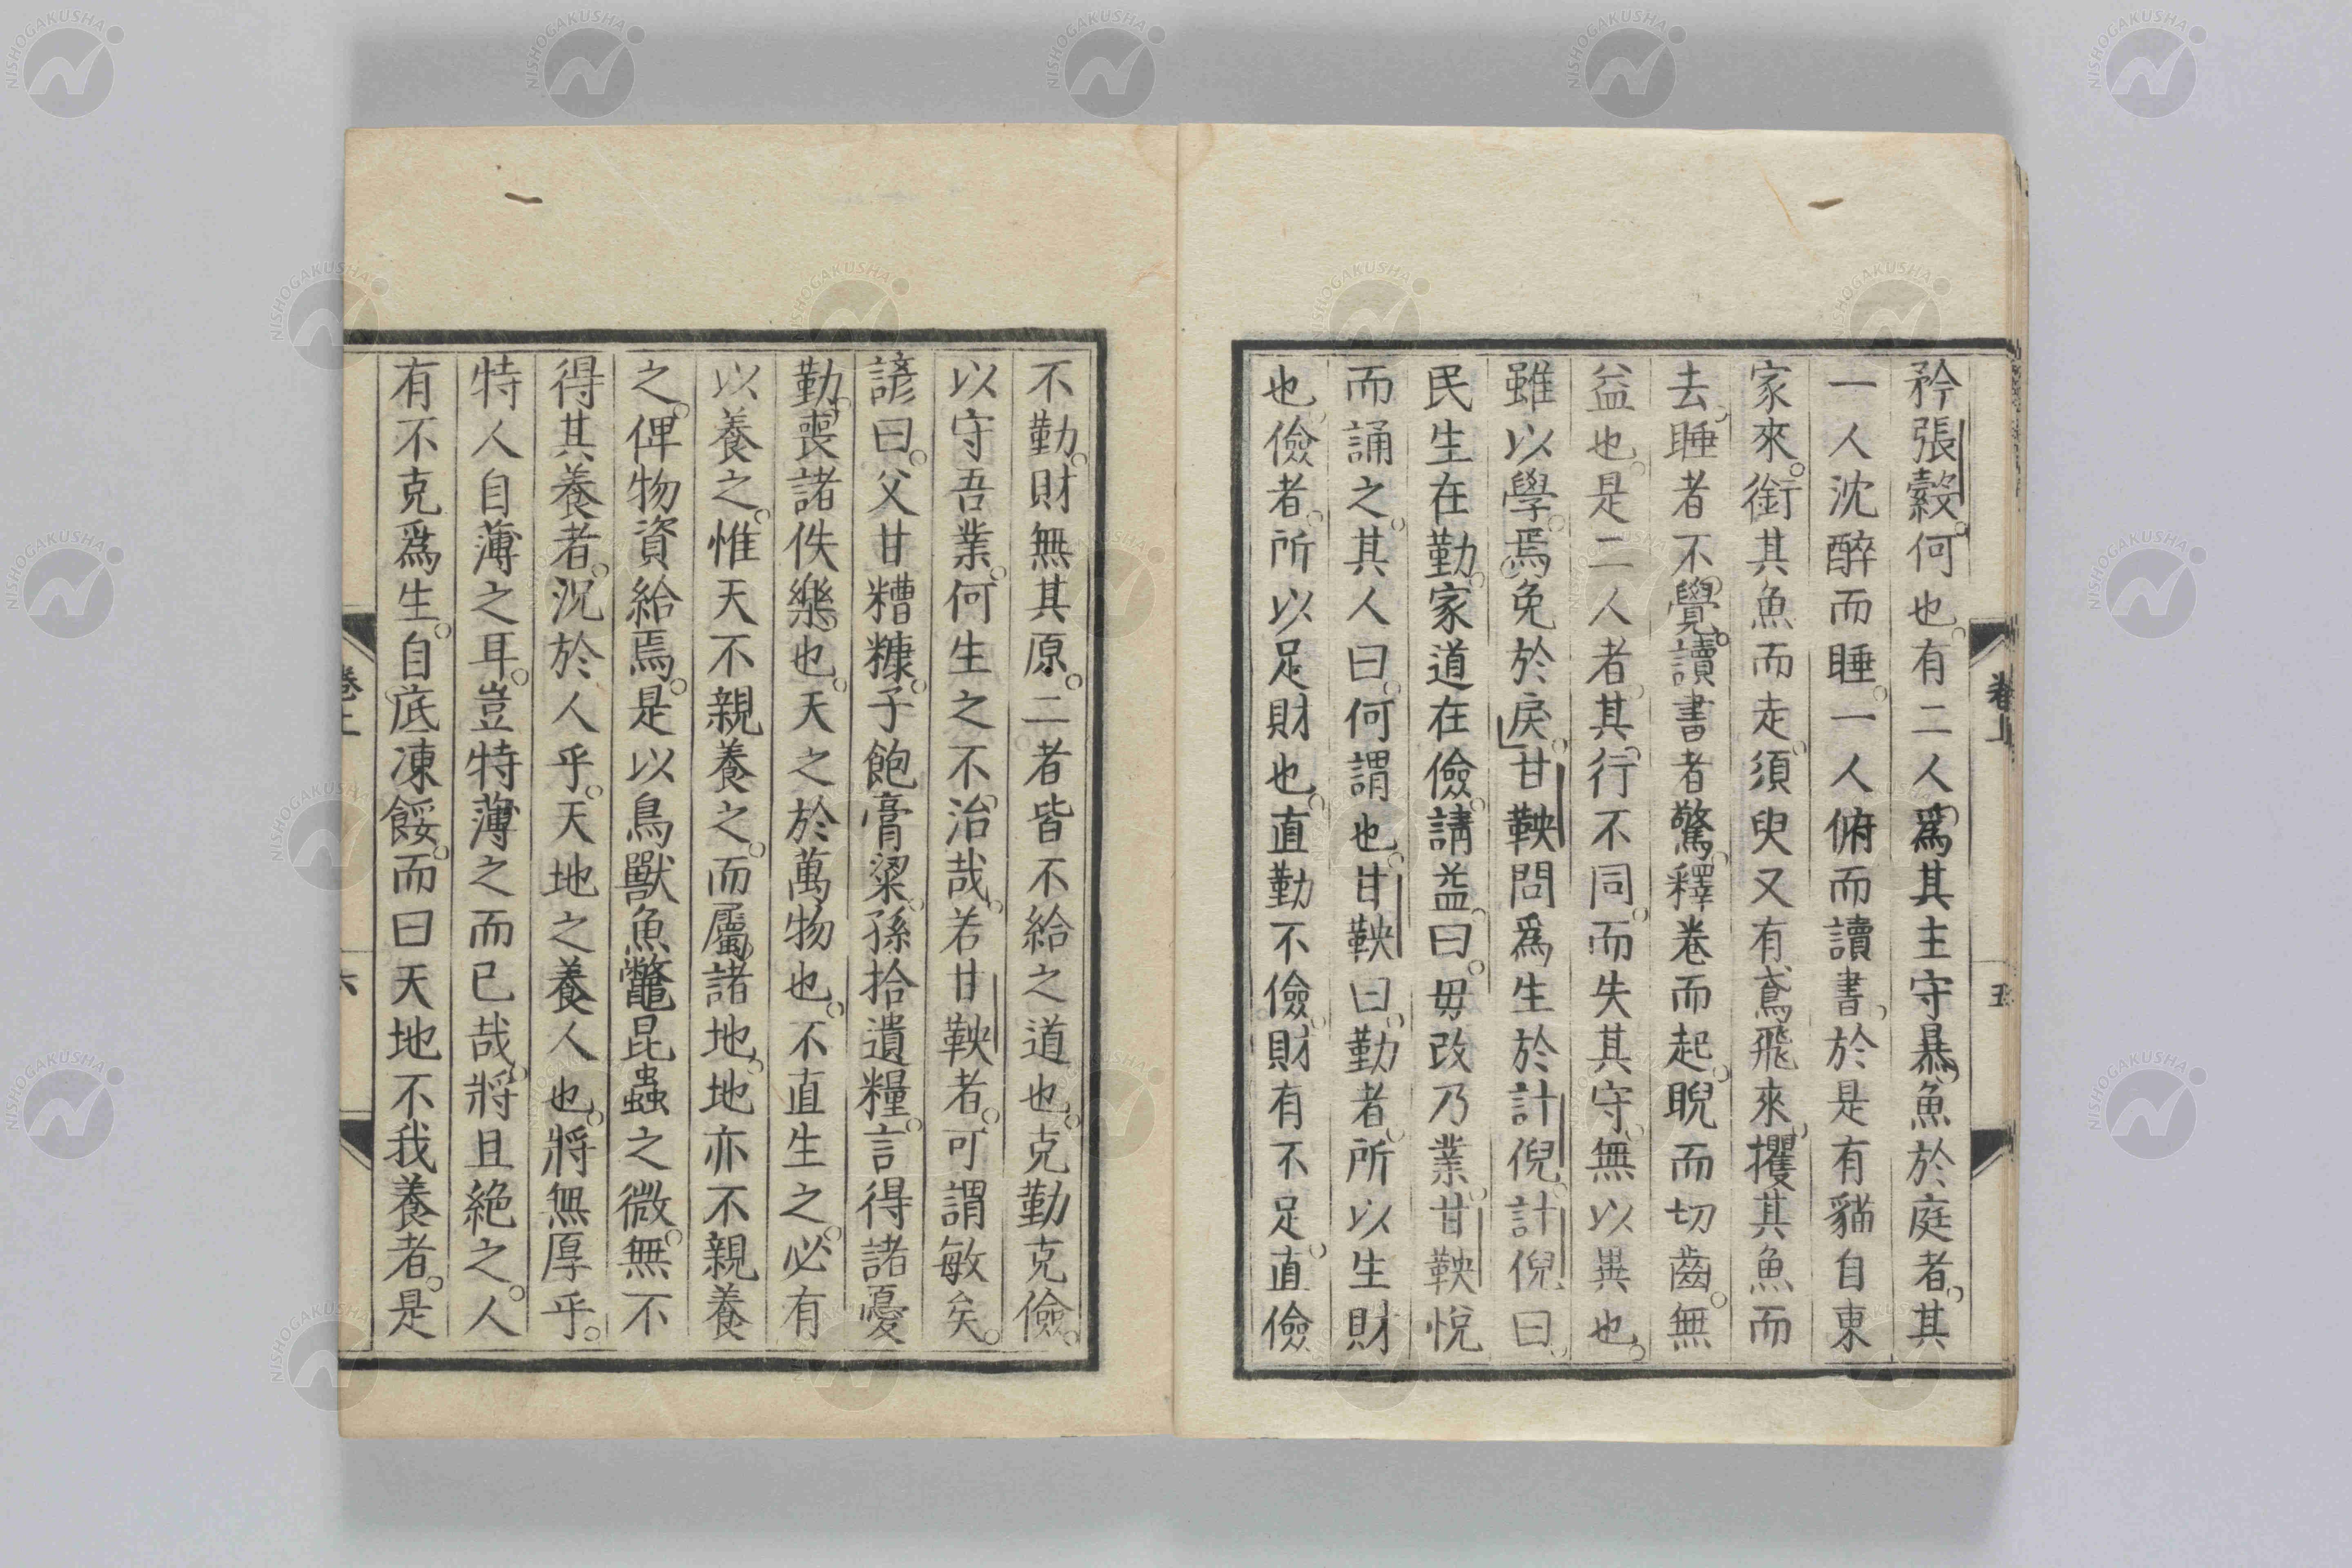 矜張縠。何也。有二人。爲其主守㬥魚於庭者。其
一人沈醉而睡。一人俯而讀書。於是有貓自東
家來。銜其魚而走。須臾又有鳶飛來。攫其魚而
去。睡者不覺。讀書者驚。釋卷而起。睨而切齒。無
益也。是二人者。其行不同。而失其守。無以異也。
雖以學。焉免於戾。甘鞅問爲生於計倪。計倪曰。
民生在勤。家道在儉。請益。曰。毋改乃業。甘鞅悅
而誦之。其人曰。何謂也。甘鞅曰。勤者。所以生財
也。儉者。所以足財也。直勤不儉。財有不足。直儉
卷上
五
不勤。財無其原。二者皆不給之道也。克勤克儉。
以守吾業。何生之不治哉。若甘鞅者。可謂敏矣。
諺曰。父甘糟糠。子飽膏粱。孫拾遺糧。言得諸憂
勤。喪諸佚樂也。天之於萬物也。不直生之。必有
以養之。惟天不親養之。而屬諸地。地亦不親養
之。俾物資給焉。是以鳥獸魚鼈昆蟲之微。無不
得其養者。況於人乎。天地之養人也。將無厚乎。
特人自薄之耳。豈特薄之而已哉。將且絶之。人
有不克爲生。自底凍餒。而曰天地不我養者。是
卷上
六
NISHOGAKUSHA